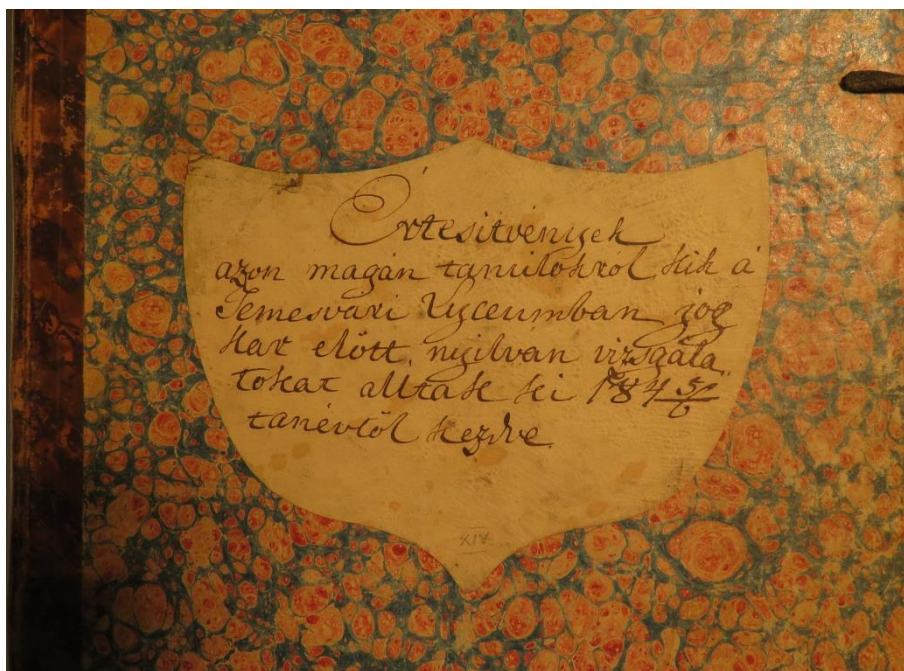 Értesitvények
azon magán tanulokról kik á
Temesvári Lyceumban jog
kar elött, nyilván vizsgála,
tokat álltak ki 184 5/6
tanévtöl kezdve.
XIV.